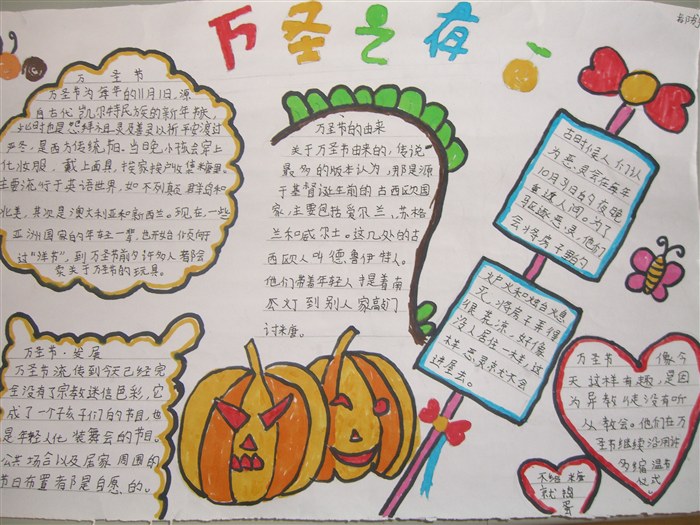 万圣之夜
万圣节
万圣节为每年的11月1日,源
自古代凯尔特民族的新年节庆,
此时也是祭拜祖灵及善灵以祈平安渡过
严冬,是西方传统节日.当日晚小孩会穿上
化妆服,戴上面具,挨家挨户收集糖果.
主要流行于英语世界,如不列颠群岛和
北美,其次是澳大利亚和新西兰.现在,一些
亚洲国家的年轻一辈,也开始倾向于
过“洋节”,到万圣节前夕许多人都会
家关于万圣节的玩具。
万圣节的由来
关于万圣节由来的,传说
最多的版本认为,那是源
于基督诞生前的古西欧国
家,主要包括爱尔兰,苏格
兰和威尔士。这几处的古
西欧人叫德鲁伊特人。
他们带着年轻人手提着南
瓜灯到别人家高门
讨来唐。
古时候人们认
为恶灵会在每年
10月31日的夜晚
重返人间。为了
驱逐恶灵,他们
会将房子里的
炉火和烛台火息
灭,将房子弄得
很荒凉,好像
没人居住一样,这
样恶灵就不会
进屋去。
万圣节·发展
万圣节流传到今天已经完
全没有了宗教迷信色彩,它
成了一个孩子们的节目,也
是年轻人化装舞会的节目.
公共场合以及居家周围的
节日布置都是自愿的。
万圣节 像今
天这样有趣,是因
为异教徒没有听
从教会。他们在万
圣节继续沿用许
为缩温节
仪式。
不给糖
就捣
蛋